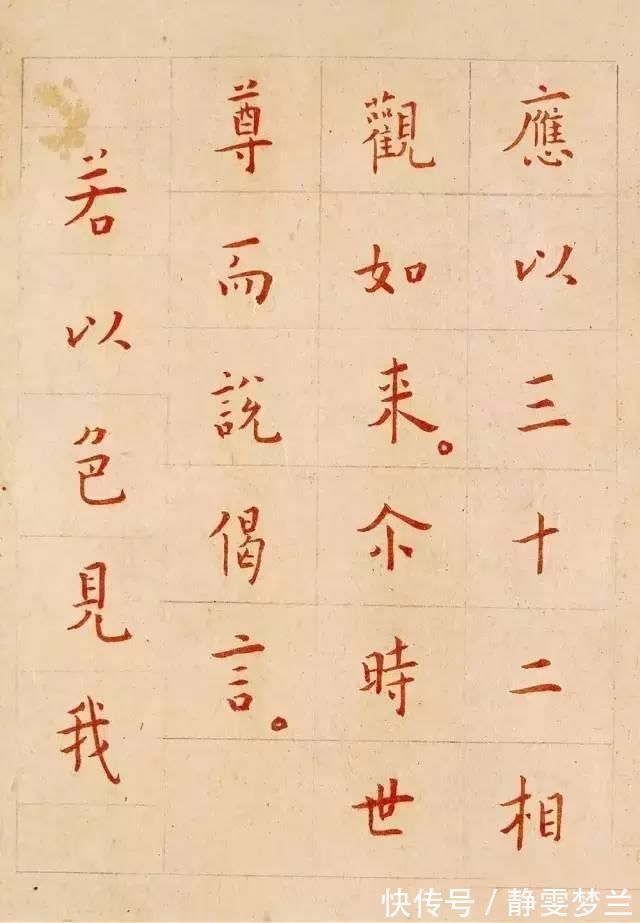 應以三十二相
觀如来。尒時世
尊而說偈言。
若以色見我
快传号/静雯梦兰